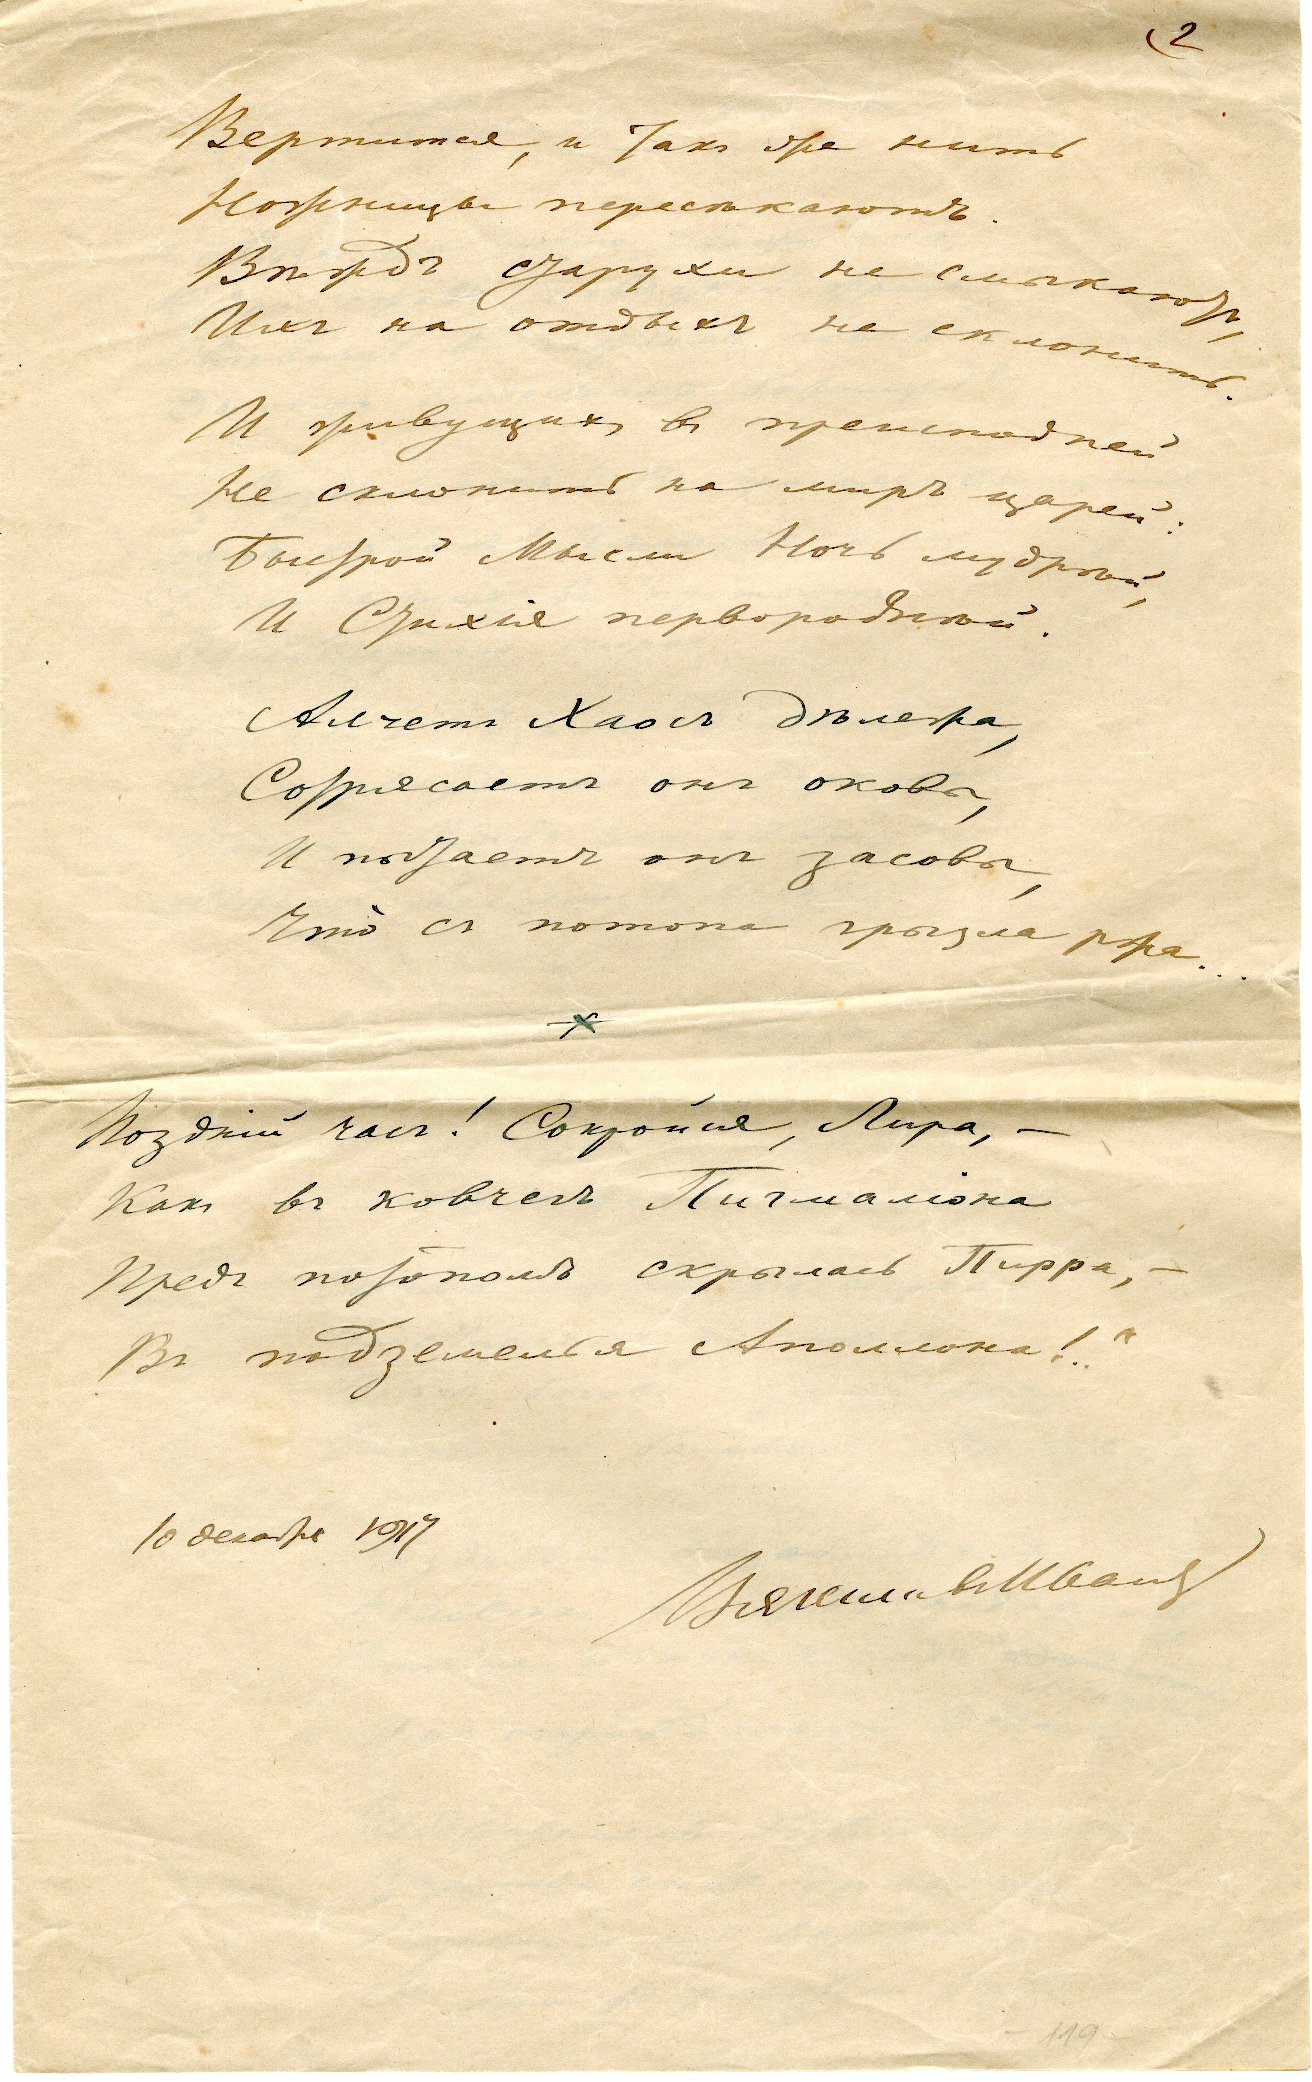 2
Вертится, и такъ же нить
Ножницы пересѣкаютъ.
Вѣждъ старухи не смыкаютъ,
Ихъ на отдыхъ не склонить.
И живущихъ въ преисподней
Не склонить на миръ царей:
Быстрой Мысли Ночь мудрѣй,
И Стихія первороднѣй.
Алчетъ Хаосъ дѣлежа,
Сотрясаетъ онъ оковы,
И пытаетъ онъ засовы,
Что съ потопа грызла ржа...
Поздній часъ! Сокройся, Лира, —
Какъ въ ковчегъ Пигмаліона
Предъ потопомъ скрылась Пирра, —
Въ подземелья Аполлона!.."
10 декабря 1917
Вячеславъ Ивановъ
- 119 -